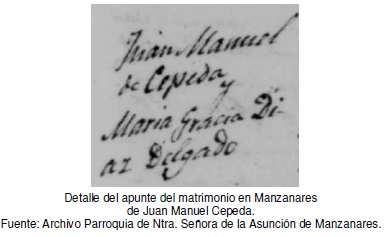 Juan Manuel
de Cepeda
y
Maria Gracia Di-
az Delgado
Detalle del apunte del matrimonio en Manzanares
de Juan Manuel Cepeda.
Fuente: Archivo Parroquia de Ntra. Señora de la Asunción de Manzanares.